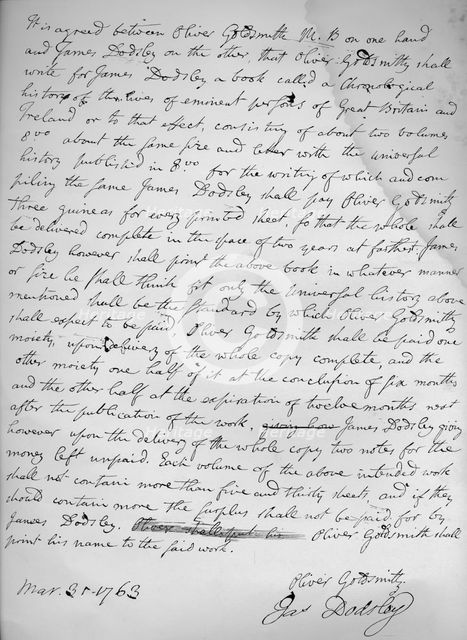 It is agreed between Oliver Goldsmith M. B on one hand
and James Dodsley on the other, that Oliver Goldsmith shall
write for James Dodsley a book called a Chronological
history of the lives of eminent persons of Great Britain and
Ireland or to that effect, consisting of about two volumes
8.vo about the same size and letter with the universal
history published in 8.vo for the writing of which and com
piling the same James Dodsley shall pay Oliver Goldsmith
three guineas for every printed sheet, so that the whole shall
be delivered complete in the space of two years at farthest. James
Dodsley however shall print the above book in whatever manner
or size he shall think fit only the Universal history above
mentioned shall be the standard by which Oliver Goldsmith
shall expect to be paid, Oliver Goldsmith shall be paid one
moiety upon delivery of the whole copy complete, and the
other moiety one half of it at the conclusion of six months
and the other half at the expiration of twelve months next
after the publication of the work, James Dodsley giving
however upon the delivery of the whole copy two notes for the
money left unpaid. Each volume of the above intended work
shall not contain more than five and thirty sheets, and if they
should contain more the surplus shall not be paid for by
James Dodsley. Oliver shall put his Oliver Goldsmith shall
print his name to the said work.
Mar. 31-1763
Oliver Goldsmith
Jas Dodsley